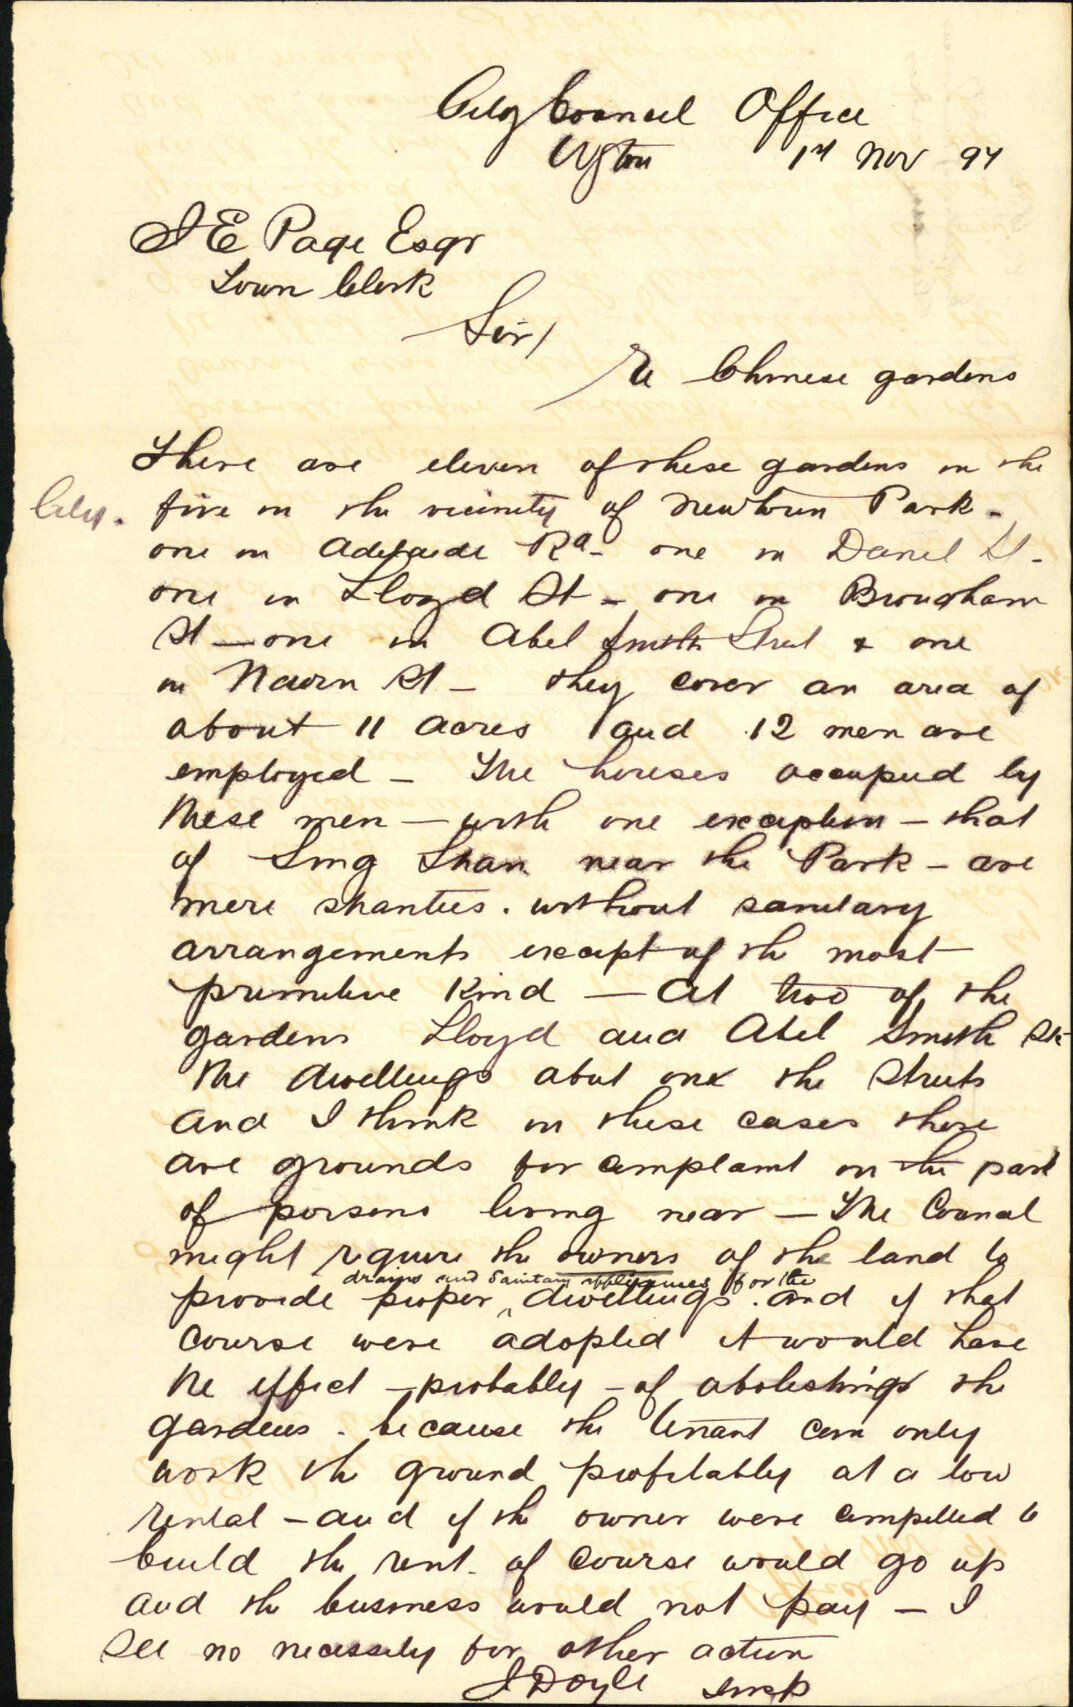 City Council Office
Wgton 1st Nov 97
J E Page Esqr
Town Clerk
Sir/
re Chinese gardens
There are eleven of these gardens in the
City. five in the vicinity of Newtown Park -
one in Adelaide Rd - one in Daniel St -
one in Lloyd St - one in Brougham
St - one in Abel Smith Street & one
in Nairn St - they cover an area of
about 11 acres and 12 men are
employed - The houses occupied by
these men - with one exception - that
of Sing Shan near the Park - are
mere shanties. without sanitary
arrangements except of the most
primitive kind - At two of the
gardens Lloyd and Abel Smith Sts
the dwellings abut on the Streets
and I think in these cases there
are grounds for complaint on the part
of persons living near - The Council
might require the owners of the land to
drains and Sanitary appliances for the
provide proper ^ dwellings. and if that
course were adopted it would have
the effect - probably - of abolishing the
gardens. because the tenant can only
work the ground profitably at a low
rental - and if the owner were compelled to
build the rent. of course would go up
and the business would not pay - I
see no necessity for other action
J Doyle Insp